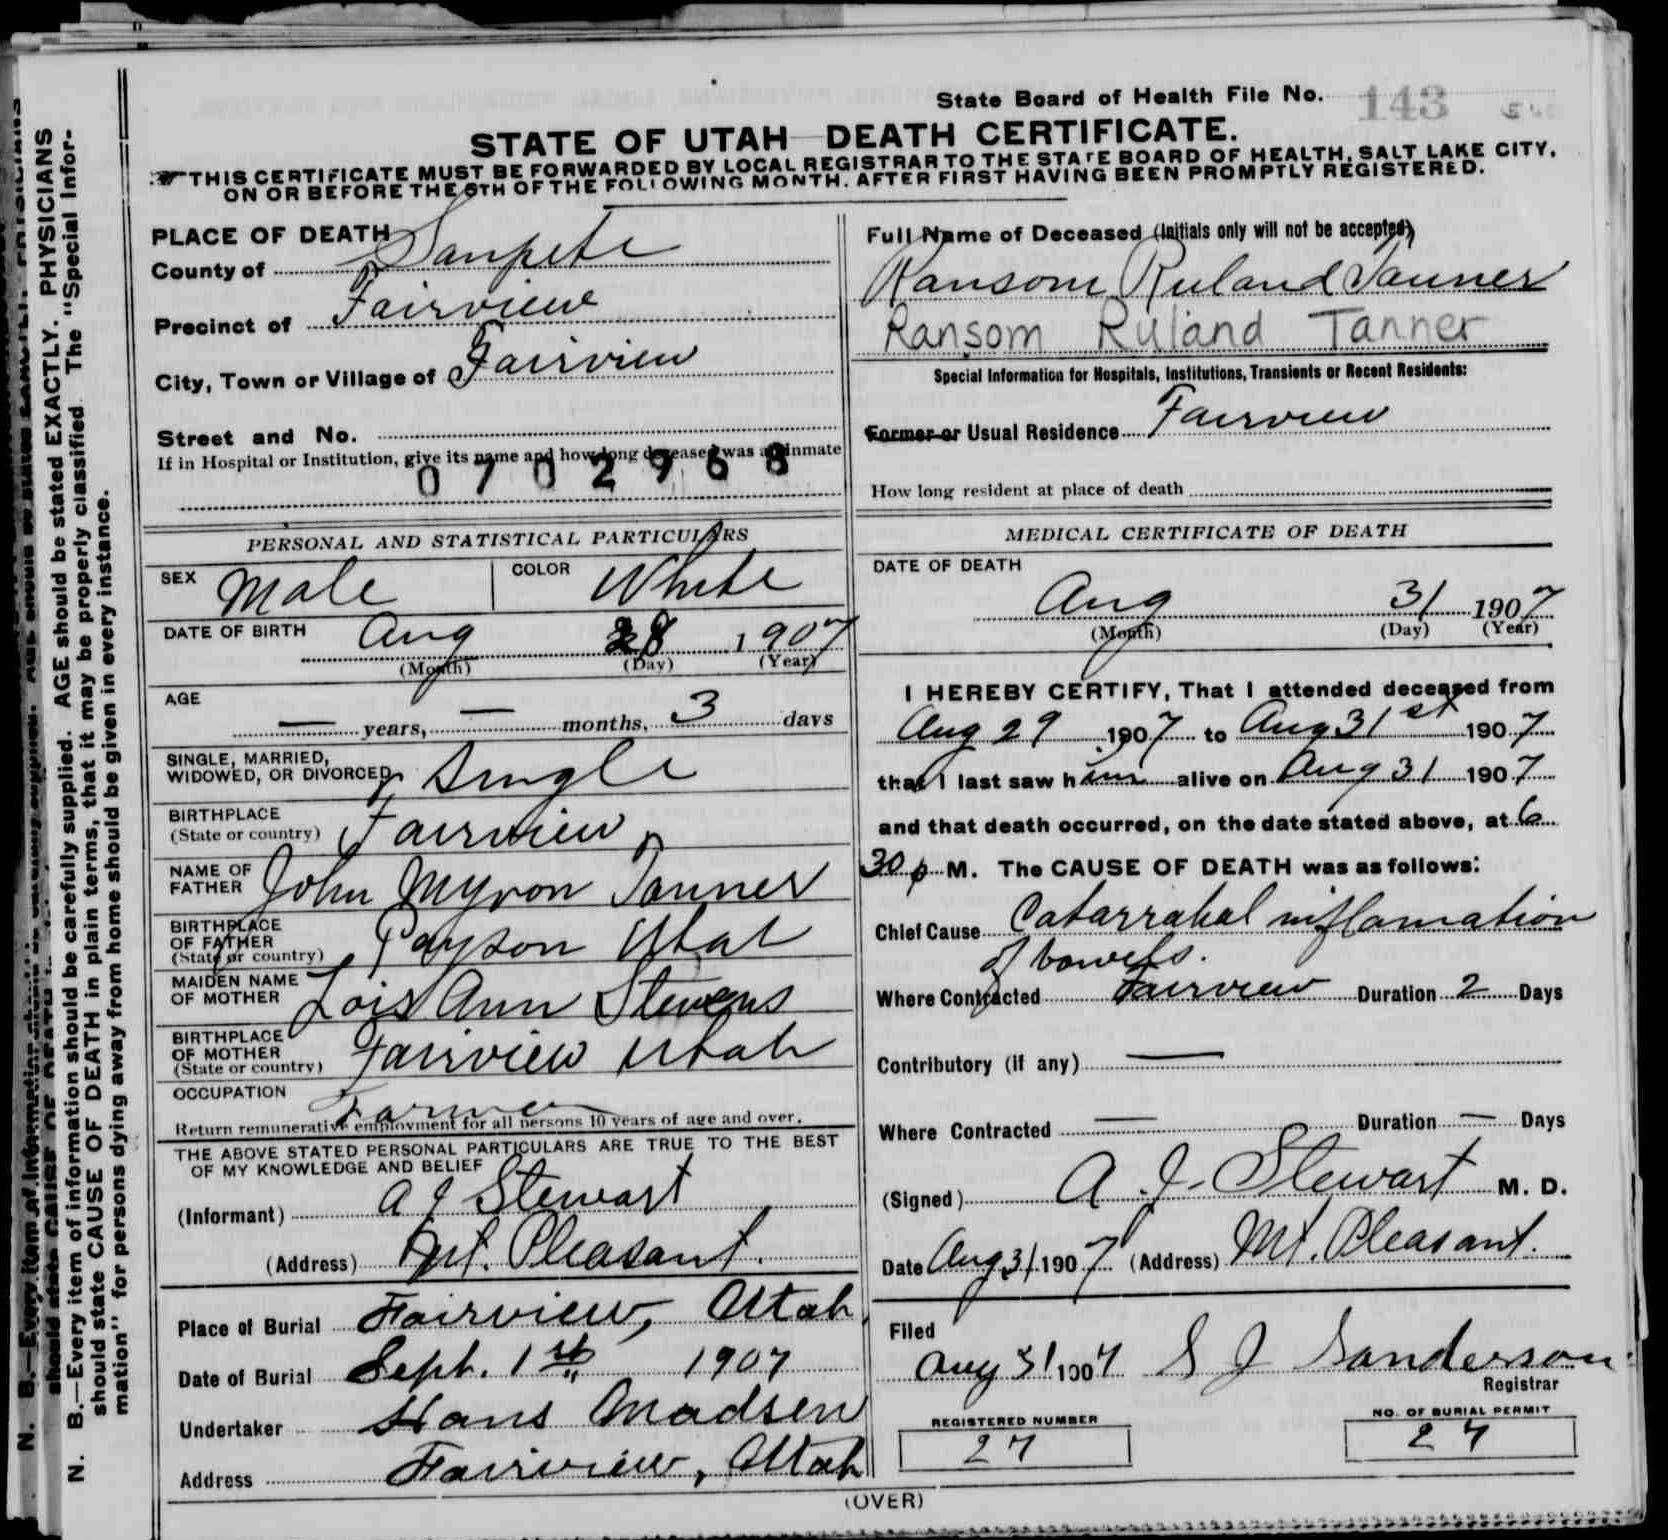 State Board of Health File No. 143
STATE OF UTAH—DEATH CERTIFICATE.
THIS CERTIFICATE MUST BE FORWARDED BY LOCAL REGISTRAR TO THE STATE BOARD OF HEALTH, SALT LAKE CITY,
ON OR BEFORE THE 5TH OF THE FOLLOWING MONTH, AFTER FIRST HAVING BEEN PROMPTLY REGISTERED.
PLACE OF DEATH
County of Sanpete
Precinct of Fairview
City, Town or Village of Fairview
Street and No.
If in Hospital or Institution, give its name and how long deceased was an inmate
0702968
Full Name of Deceased (Initials only will not be accepted)
Ransom Ruland Tanner
Ransom Ruland Tanner
Special Information for Hospitals, Institutions, Transients or Recent Residents:
Former or Usual Residence Fairview
How long resident at place of death
PERSONAL AND STATISTICAL PARTICULARS
SEX Male COLOR White
DATE OF BIRTH Aug 28 1907
(Month) (Day) (Year)
AGE
— years, — months, 3 days
SINGLE, MARRIED,
WIDOWED, OR DIVORCED Single
BIRTHPLACE
(State or country) Fairview
NAME OF
FATHER John Myron Tanner
BIRTHPLACE
OF FATHER
(State or country) Payson Utah
MAIDEN NAME
OF MOTHER Lois Ann Stevens
BIRTHPLACE
OF MOTHER
(State or country) Fairview Utah
OCCUPATION
Farmer
Return remunerative employment for all persons 10 years of age and over.
THE ABOVE STATED PERSONAL PARTICULARS ARE TRUE TO THE BEST
OF MY KNOWLEDGE AND BELIEF
(Informant) A J Stewart
(Address) Mt. Pleasant.
Place of Burial Fairview, Utah
Date of Burial Sept. 1st 1907
Undertaker Hans Madsen
Address Fairview, Utah
MEDICAL CERTIFICATE OF DEATH
DATE OF DEATH
Aug 31 1907
(Month) (Day) (Year)
I HEREBY CERTIFY, That I attended deceased from
Aug 29 1907 to Aug 31st 1907
that I last saw him alive on Aug 31 1907
and that death occurred, on the date stated above, at 6
30 p M. The CAUSE OF DEATH was as follows:
Chief Cause Catarrahal inflamation
of bowels.
Where Contracted Fairview Duration 2 Days
Contributory (if any) —
Where Contracted — Duration — Days
(Signed) A. J. Stewart M. D.
Date Aug 31 1907 (Address) Mt. Pleasant.
Filed
Aug 31 1907 S J Sanderson
Registrar
REGISTERED NUMBER
27
NO. OF BURIAL PERMIT
27
(OVER)
N. B.—Every item of information should be carefully supplied. AGE should be stated EXACTLY. PHYSICIANS
should state CAUSE OF DEATH in plain terms, that it may be properly classified. The "Special Infor-
mation" for persons dying away from home should be given in every instance.